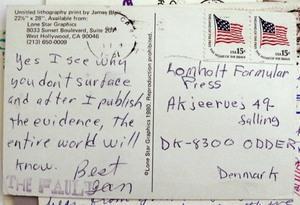 Untitled lithography print by James B
22½" x 28". Available from:
Lone Star Graphics
8033 Sunset Boulevard, Suite
West Hollywood, CA 90046
(213) 650-0009
Yes I see why
you don't surface
and after I publish
the evidence, the
entire world will
know. Best
THE FAULT
©Lone Star Graphics 1980. Reproduction prohibited.
USA 15c
USA 15c
Lomholt Formular
Press
Akjeervej 49
Salling
DK-8300 ODDER
Denmark